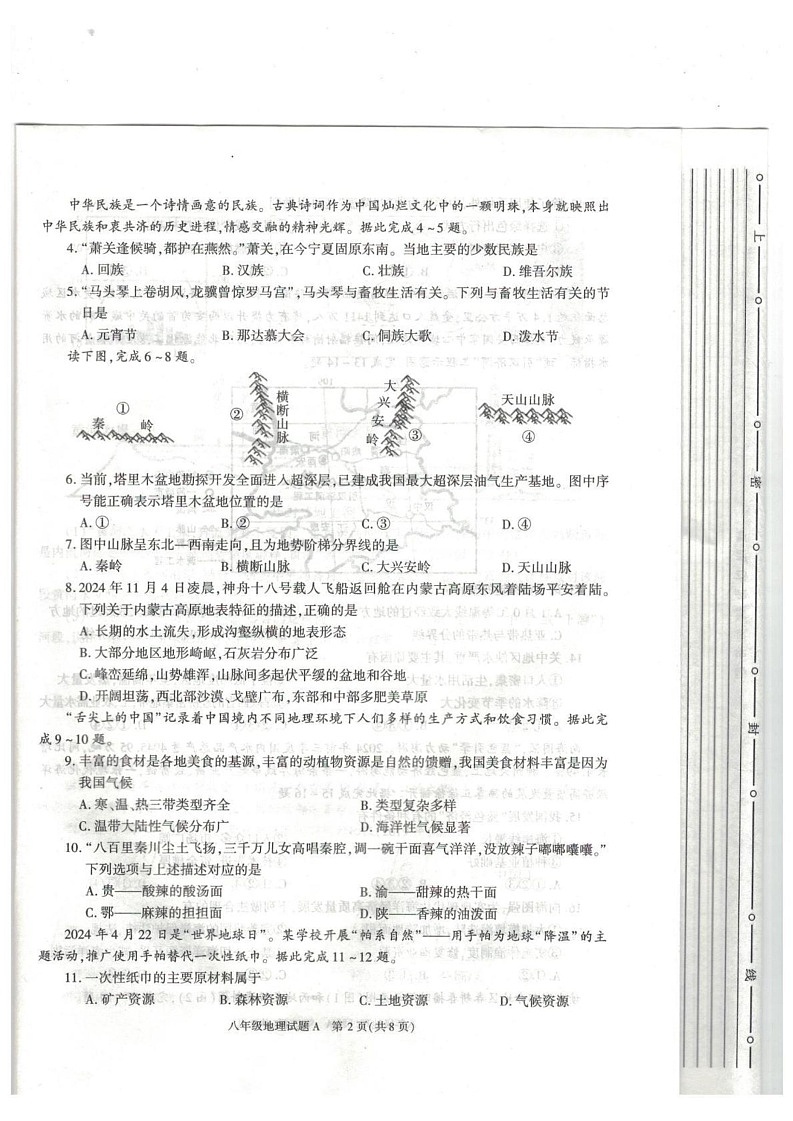 中华民族是一个诗情画意的民族。古典诗词作为中国灿烂文化中的一颗明珠,本身就映照出
中华民族和衷共济的历史进程,情感交融的精神光辉。据此完成4~5题。
4.“萧关逢候骑,都护在燕然。”萧关,在今宁夏固原东南。当地主要的少数民族是
A.回族 B.汉族 C.壮族 D.维吾尔族
5.“马头琴上卷胡风,龙骥曾惊罗马宫”,马头琴与畜牧生活有关。下列与畜牧生活有关的节
日是
A.元宵节 B.那达慕大会 C.侗族大歌 D.泼水节
读下图,完成6~8题。
① 秦岭
② 横断山脉
大兴安岭 ③
天山山脉 ④
6.当前,塔里木盆地勘探开发全面进入超深层,已建成我国最大超深层油气生产基地。图中序
号能正确表示塔里木盆地位置的是
A.① B.② C.③ D.④
7.图中山脉呈东北—西南走向,且为地势阶梯分界线的是
A.秦岭 B.横断山脉 C.大兴安岭 D.天山山脉
8.2024年11月4日凌晨,神舟十八号载人飞船返回舱在内蒙古高原东风着陆场平安着陆。
下列关于内蒙古高原地表特征的描述,正确的是
A.长期的水土流失,形成沟壑纵横的地表形态
B.大部分地区地形崎岖,石灰岩分布广泛
C.峰峦延绵,山势雄浑,山脉间多起伏平缓的盆地和谷地
D.开阔坦荡,西北部沙漠、戈壁广布,东部和中部多肥美草原
“舌尖上的中国”记录着中国境内不同地理环境下人们多样的生产方式和饮食习惯。据此完
成9~10题。
9.丰富的食材是各地美食的基源,丰富的动植物资源是自然的馈赠,我国美食材料丰富是因为
我国气候
A.寒、温、热三带类型齐全 B.类型复杂多样
C.温带大陆性气候分布广 D.海洋性气候显著
10.“八百里秦川尘土飞扬,三千万儿女高唱秦腔,调一碗干面喜气洋洋,没放辣子嘟嘟囔囔。”
下列选项与上述描述对应的是
A.贵——酸辣的酸汤面 B.渝——甜辣的热干面
C.鄂——麻辣的担担面 D.陕——香辣的油泼面
2024年4月22日是“世界地球日”。某学校开展“帕系自然”——用手帕为地球“降温”的主
题活动,推广使用手帕替代一次性纸巾。据此完成11~12题。
11.一次性纸巾的主要原材料属于
A.矿产资源 B.森林资源 C.土地资源 D.气候资源
八年级地理试题A 第2页(共8页)
上
密
封
线